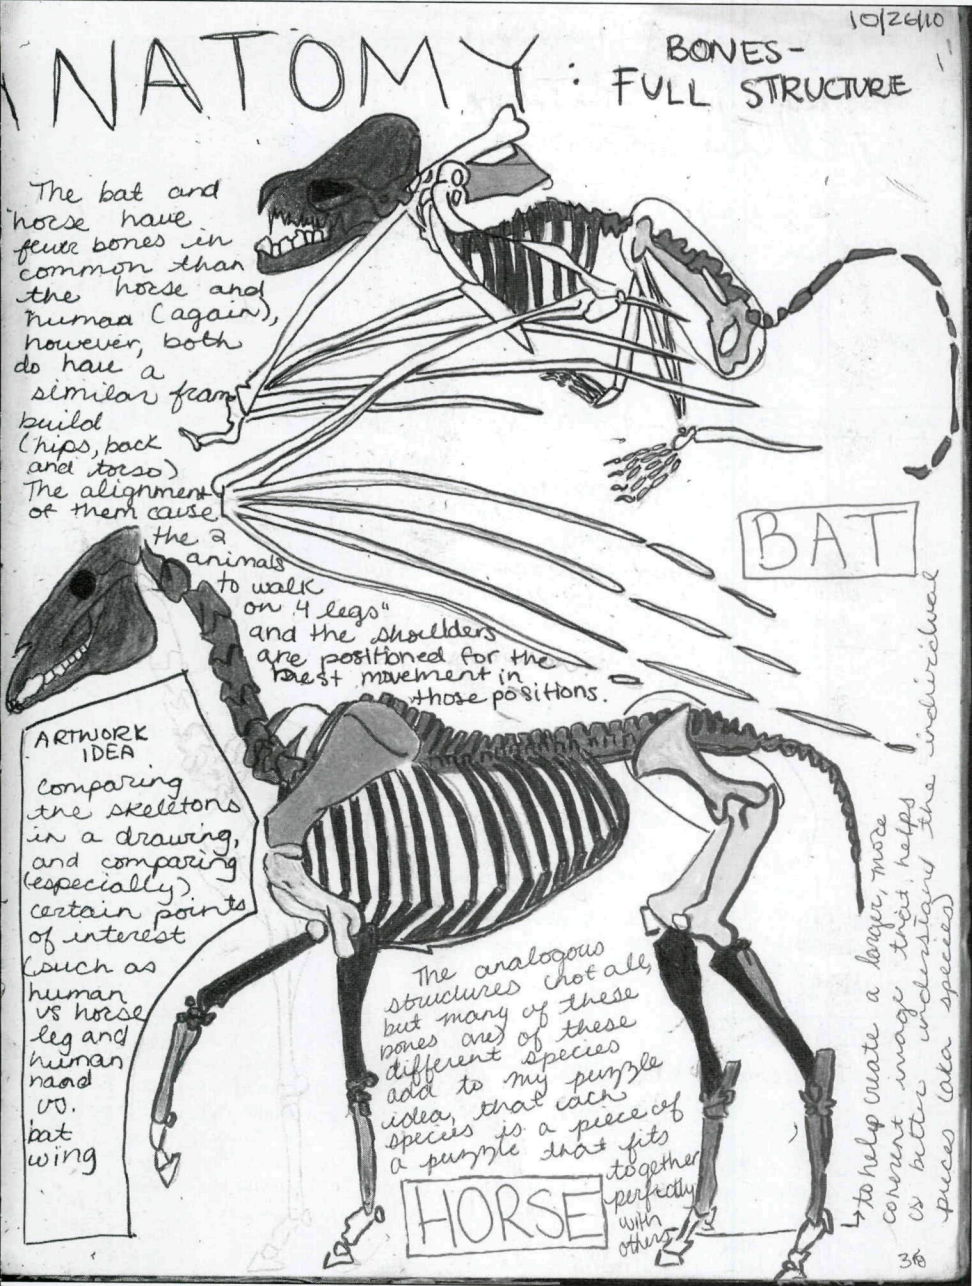 10/26/10
ANATOMY:
BONES-
FULL STRUCTURE
The bat and
horse have
fewer bones in
common than
the horse and
human (again),
however, both
do have a
similar fram
build
(hips, back
and torso)
The alignment
of them cause
the 2
animals
to walk
on "4 legs"
and the shoulders
are positioned for the
best movement in
those positions.
BAT
ARTWORK
IDEA
comparing
the skeletons
in a drawing,
and comparing
(especially)
certain points
of interest
(such as
human
vs horse
leg and
human
hand
vs.
bat
wing
The analogous
structures (not all,
but many of these
bones are) of these
different species
add to my puzzle
idea, that each
species is a piece of
a puzzle that fits
together
perfectly
with
others
HORSE
↳ to help create a larger, more
coherent image that helps
us better understand the individual
pieces (aka species)